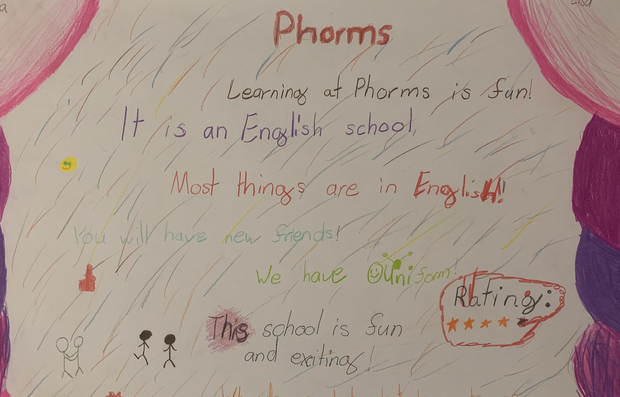 Phorms
Learning at Phorms is fun!
It is an English school,
Most things are in English!!
You will have new friends!
We have Uniform!
Rating:
This school is fun
and exiting!